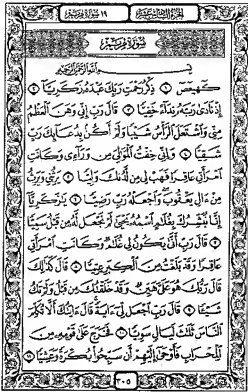 الجزء السادس عشر ١٩ سورة مريم
سورة مريم
بسم الله الرحمن الرحيم
كهيعص ١ ذكر رحمت ربك عبده زكريا ٢
إذ نادى ربه نداء خفيا ٣ قال رب إني وهن العظم
مني واشتعل الرأس شيبا ولم أكن بدعائك رب
شقيا ٤ وإني خفت الموالي من وراءي وكانت
امرأتي عاقرا فهب لي من لدنك وليا ٥ يرثني ويرث
من ءال يعقوب واجعله رب رضيا ٦ يزكريا
إنا نبشرك بغلم اسمه يحيى لم نجعل له من قبل سميا
٧ قال رب أنى يكون لي غلم وكانت امرأتي
عاقرا وقد بلغت من الكبر عتيا ٨ قال كذلك
قال ربك هو علي هين وقد خلقتك من قبل ولم تك
شيئا ٩ قال رب اجعل لي ءاية قال ءايتك ألا تكلم
الناس ثلث ليال سويا ١٠ فخرج على قومه من
المحراب فأوحى إليهم أن سبحوا بكرة وعشيا ١١
٣٠٥